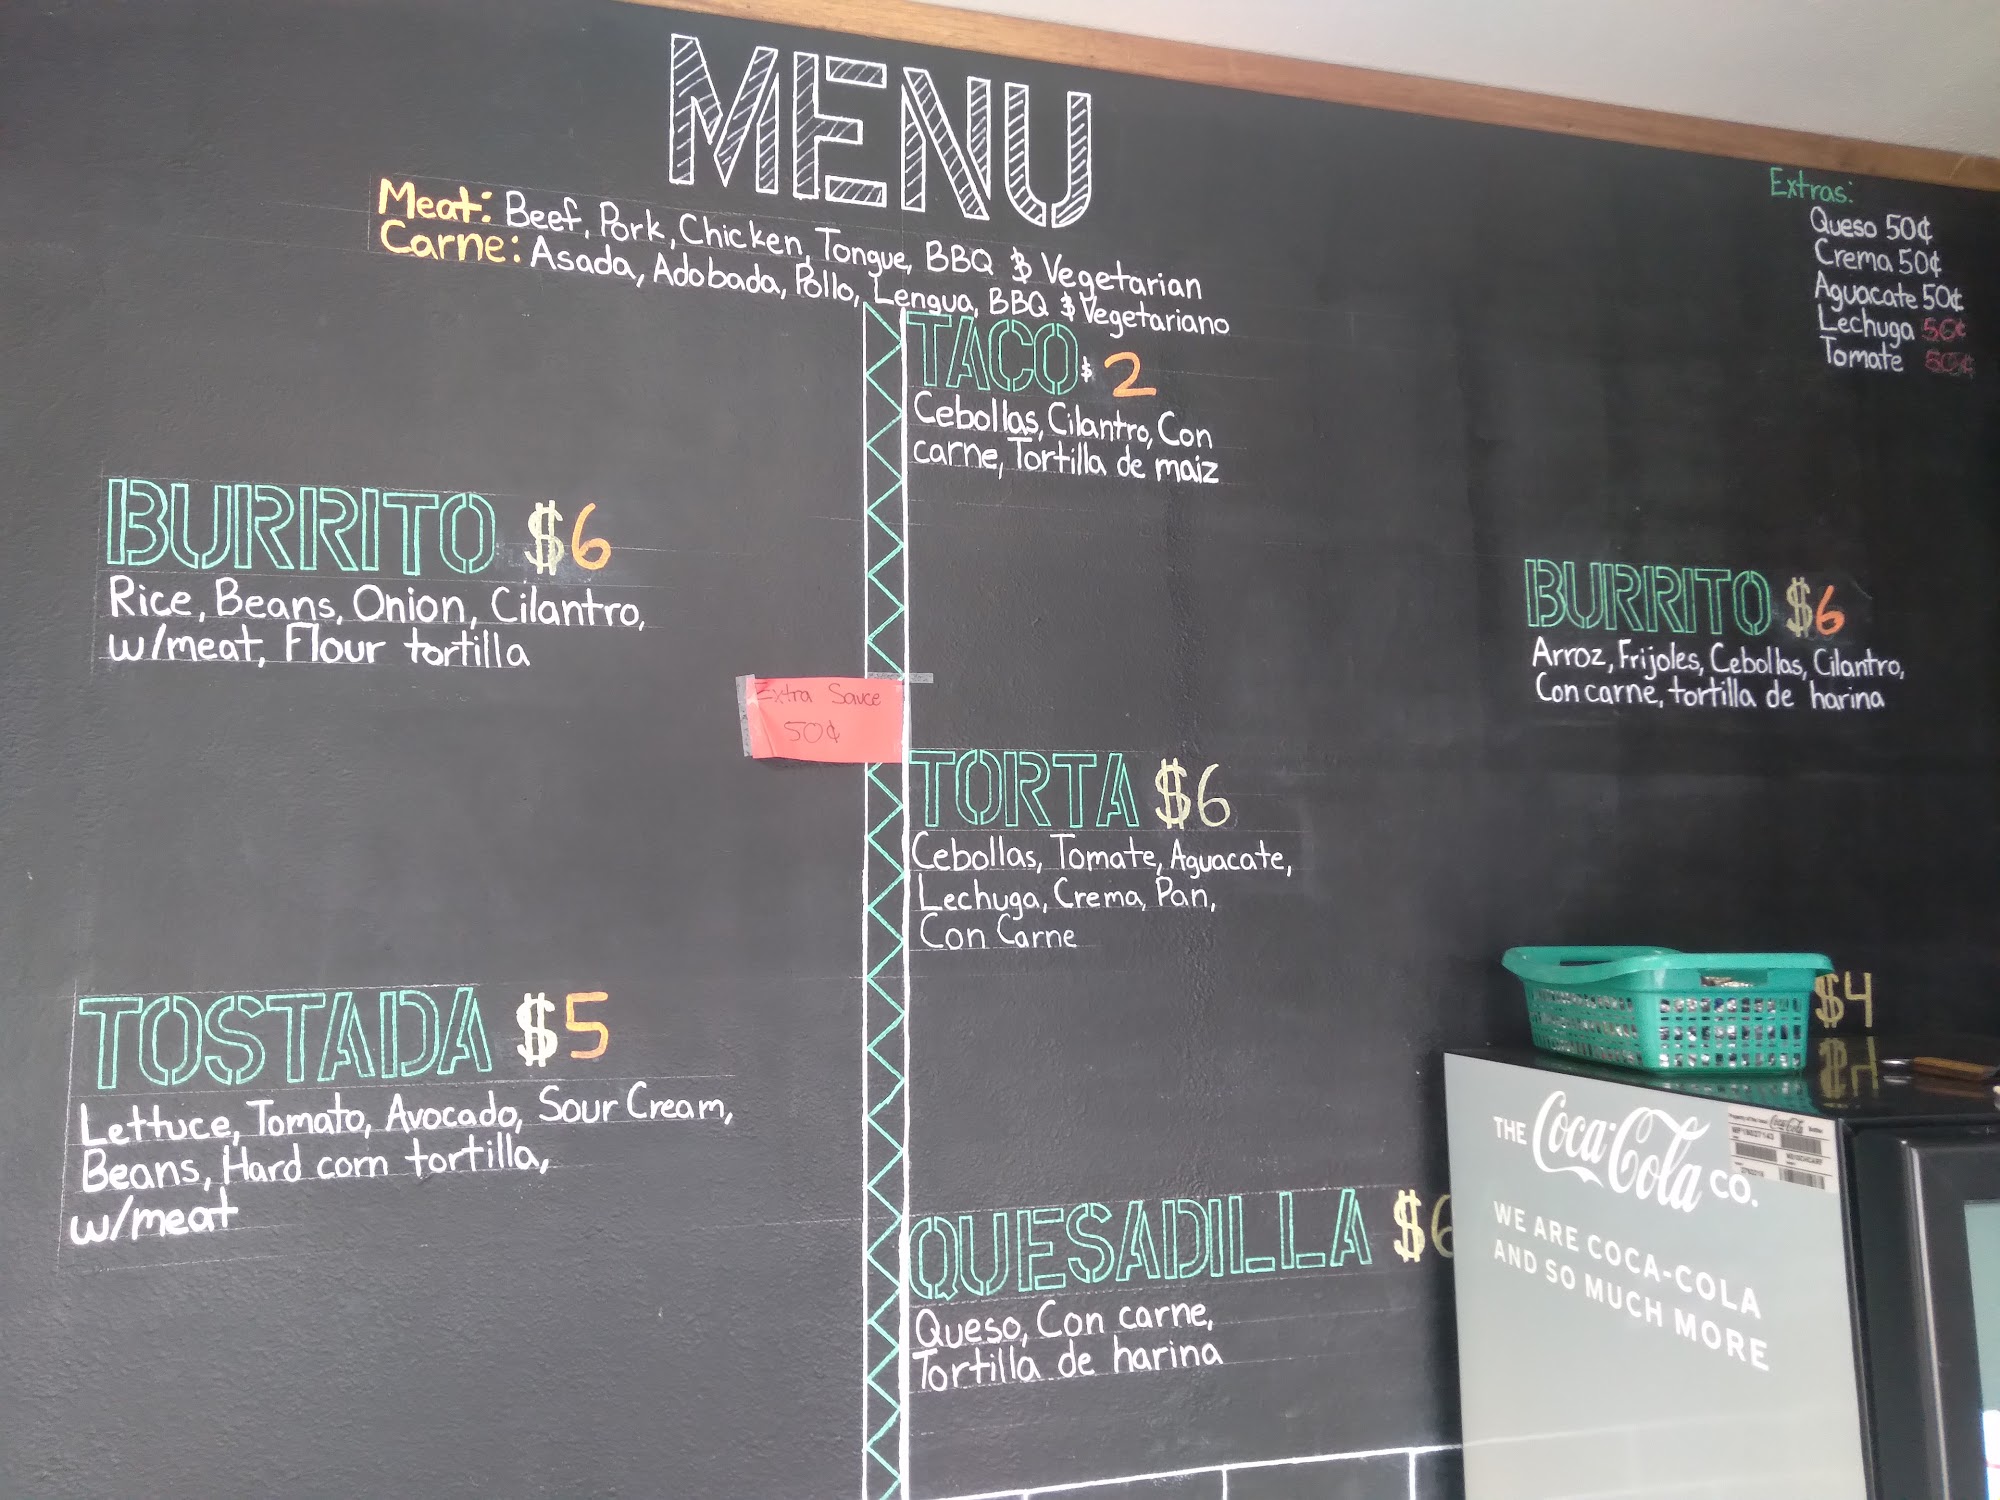 MENU
Meat: Beef, Pork, Chicken, Tongue, BBQ & Vegetarian
Carne: Asada, Adobada, Pollo, Lengua, BBQ & Vegetariano
Extras:
Queso 50¢
Crema 50¢
Aguacate 50¢
Lechuga 50¢
Tomate 50¢
TACO $2
Cebollas, Cilantro, Con
carne, Tortilla de maiz
BURRITO $6
Rice, Beans, Onion, Cilantro,
w/meat, Flour tortilla
BURRITO $6
Arroz, Frijoles, Cebollas, Cilantro,
Con carne, tortilla de harina
Extra Sauce
50¢
TORTA $6
Cebollas, Tomate, Aguacate,
Lechuga, Crema, Pan,
Con Carne
TOSTADA $5
Lettuce, Tomato, Avocado, Sour Cream,
Beans, Hard corn tortilla,
w/meat
$4
QUESADILLA $6
Queso, Con carne,
Tortilla de harina
THE Coca-Cola CO.
WE ARE COCA-COLA
AND SO MUCH MORE